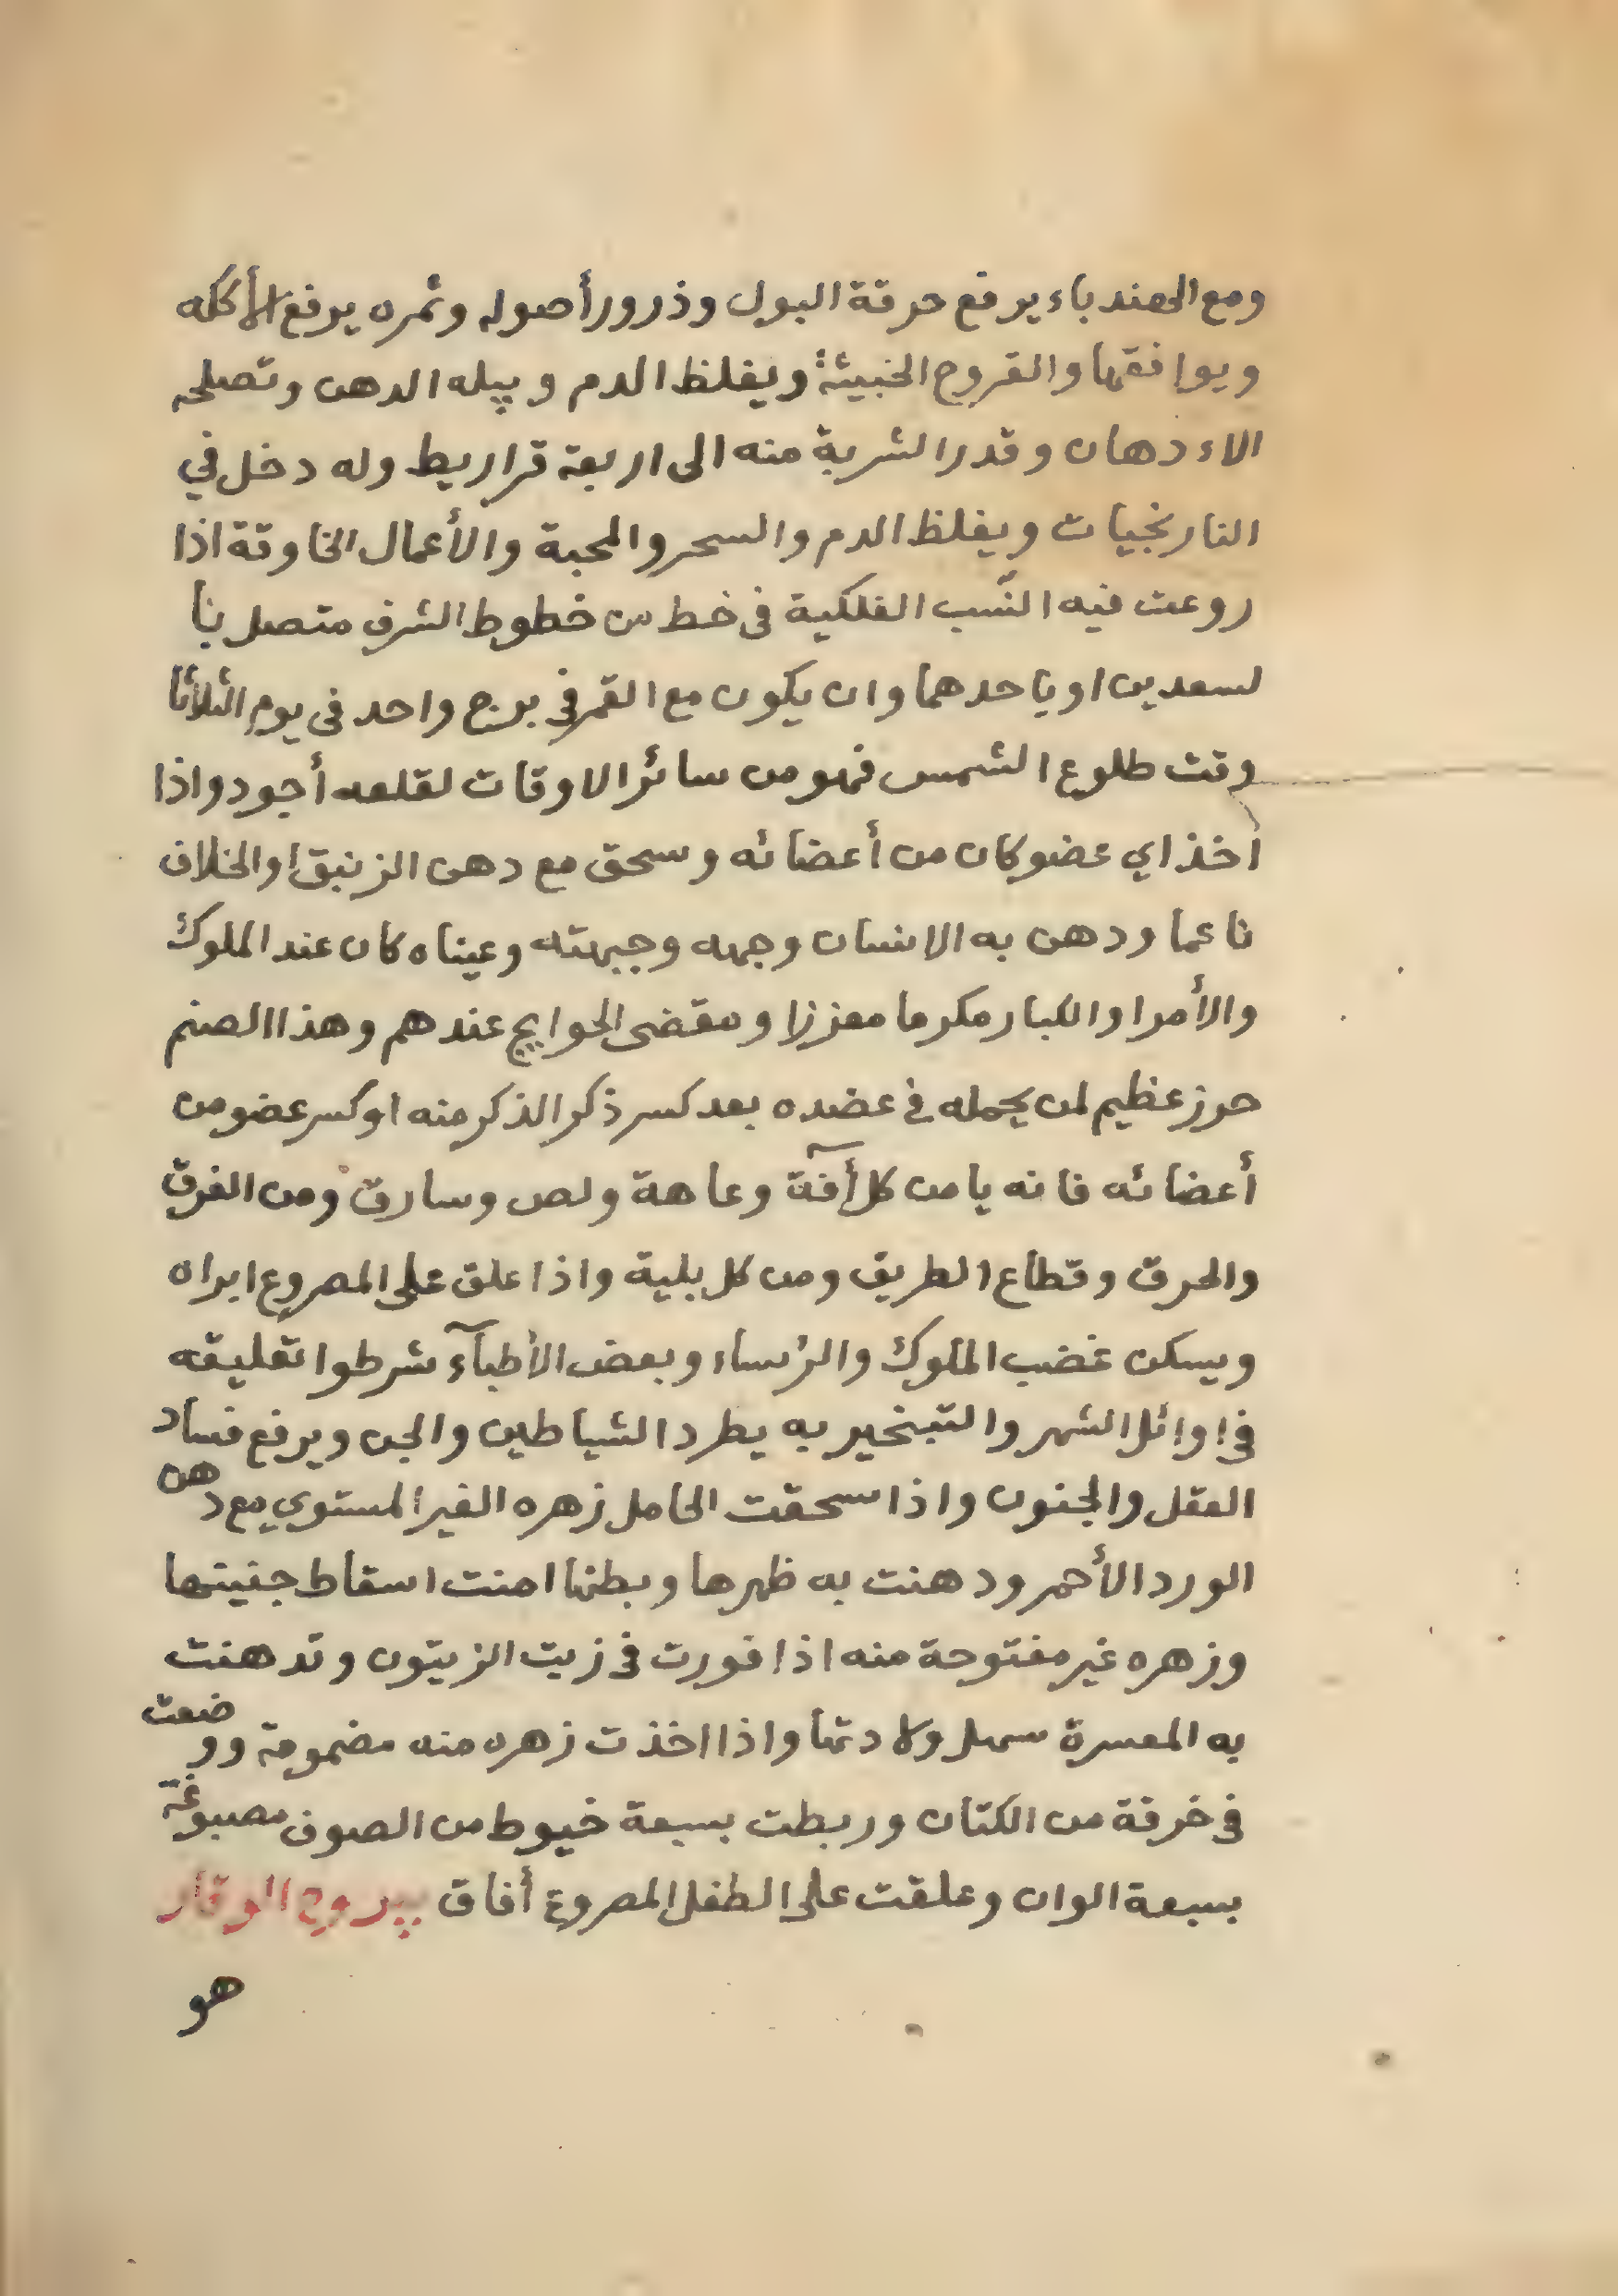 ومع الهندباء يرفع حرقة البول وذرور أصوله وثمره يرفع الأكله
ويوافقها والقروح الخبيثة ويغلظ الدم ويبله الدهن وتصلحه
الاءدهان وقدر الشربة منه الى اربعة قراريط وله دخل في
النارنجيات ويغلظ الدم والسحر والمحبة والأعمال الخاوقة اذا
روعت فيه النّسب الفلكية في خط من خطوط الشرف متصل بأ
لسعدين او باحدهما وان يكون مع القمر في برج واحد في يوم الثلاثا
وقت طلوع الشمس فهو من سائر الاوقات لقلعه أجود واذا
أخذ اي عضو كان من أعضائه وسحق مع دهن الزنبق او الخلاف
ناعما ودهن به الانسان وجهه وجبهته وعيناه كان عند الملوك
والأمرا والكبار مكرما معززا ومقضى الحوايج عندهم وهذا الصنم
حرز عظيم لمن يحمله في عضده بعد كسر ذكر الذكر منه او كسر عضو من
أعضائه فانه يامن كل أفة وعاهة ولص وسارق ومن الغرق
والحرق وقطاع الطريق ومن كل بلية واذا علق على المصروع ابراه
ويسكن غضب الملوك والرئساء وبعض الأطبآء شرطوا تعليقه
في اوائل الشهر والتبخير به يطرد الشياطين والجن ويرفع فساد
العقل والجنون واذا سحقت الحامل زهره الغير المستوي مع دهن
الورد الأحمر ودهنت به ظهرها وبطنها امنت اسقاط جنينها
وزهره غير مفتوحة منه اذا فورت في زيت الزيتون وتدهنت
به المعسرة سهل ولادتها واذا اخذت زهره منه مضمومة ووضعت
في خرقة من الكتان وربطت بسبعة خيوط من الصوف مصبوغة
بسبعة الوان وعلقت على الطفل المصروع أفاق يبروح الوقاد
هو